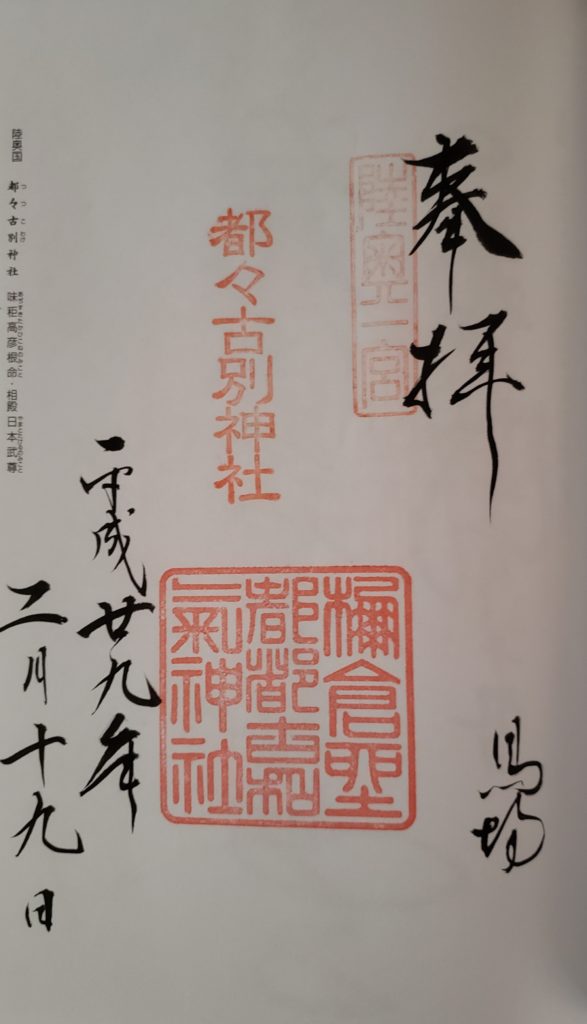 奉拝
馬場
陸奥一宮
都々古別神社
棚倉
都都古和
氣神社
平成廿九年
二月十九日
陸奥国 都々古別神社 味耜高彦根命・相殿 日本武尊